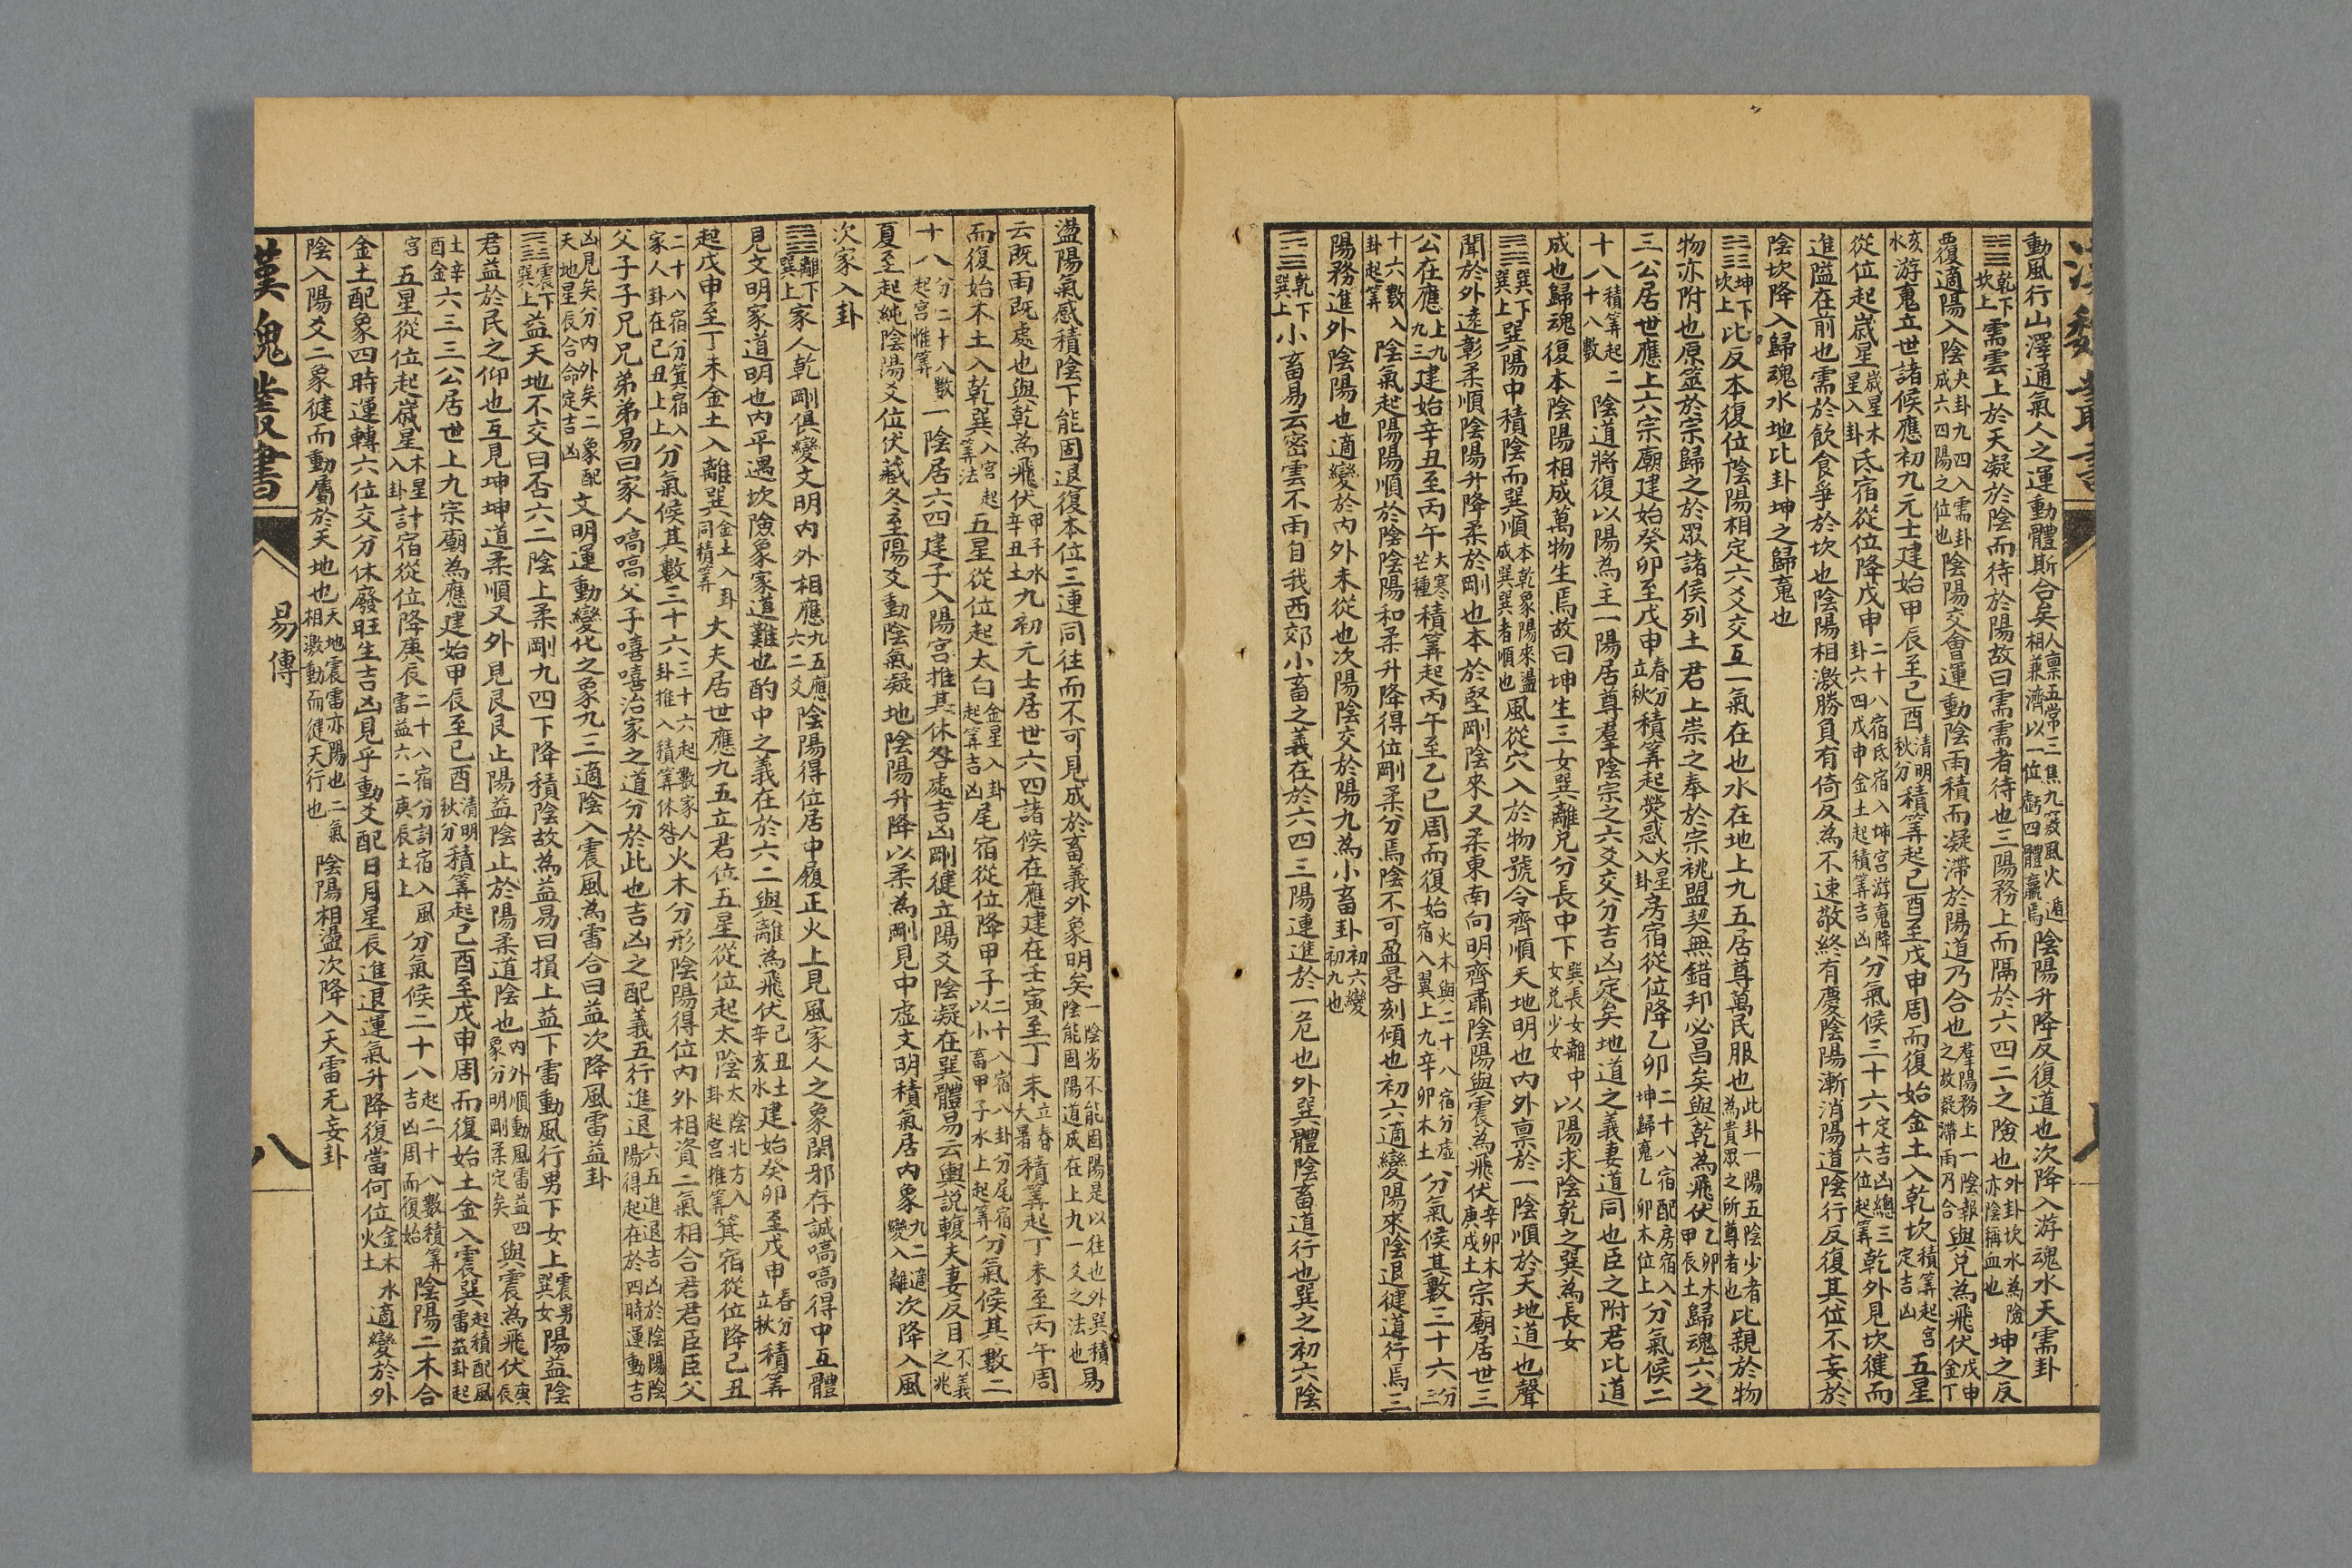 動風行山澤通氣人之運動體斯合矣人禀五常三焦九竅風火遁相兼濟以一位虧四體羸焉陰陽升降反復道也次降入游魂水天需卦
乾下坎上需雲上於天凝於陰而待於陽故曰需需者待也三陽務上而隔於六四二之險也外卦坎水為險亦陰稱血也坤之反
覆適陽入陰夬卦九四入需卦成六四陽之位也陰陽交會運動陰雨積而凝滯於陽道乃合也羣陽務上一陰報之故凝滯雨乃合與兌為飛伏戊申金丁
亥水游䰟立世諸候應初九元士建始甲辰至己酉清明秋分積筭起己酉至戊申周而復始金土入乾坎積筭起宮定吉凶五星
從位起嵗星嵗星木星入卦氐宿從位降戊申二十八宿氐宿入坤宮游䰟降卦六四戊申金土起積筭吉凶分氣候三十六定吉凶總三十六位起筭乾外見坎徤而
進隘在前也需於飲食爭於坎也陰陽相激勝負有倚反為不速敬終有慶陰陽漸消陽道陰行反復其位不妄於
陰坎降入歸魂水地比卦坤之歸䰟也
坤下坎上比反本復位陰陽相定六爻交互一氣在也水在地上九五居尊萬民服也此卦一陽五陰少者為貴眾之所尊者也比親於物
物亦附也原筮於宗歸之於眾諸侯列土君上崇之奉於宗祧盟契無錯邦必昌矣與乾為飛伏乙卯木甲辰土歸魂六之
三公居世應上六宗廟建始癸卯至戊申春分立秋積筭起熒惑火星入卦房宿從位降乙卯二十八宿配房宿入坤歸䰟乙卯木位上分氣候二
十八積筭起二十八數陰道將復以陽為主一陽居尊羣陰宗之六爻交分吉凶定矣地道之義妻道同也臣之附君比道
成也歸魂復本陰陽相成萬物生焉故曰坤生三女巽離兌分長中下巽長女離中女兌少女以陽求陰乾之巽為長女
巽下巽上巽陽中積陰而巽順本乾象陽來盪成巽巽者順也風從穴入於物號令齊順天地明也內外禀於一陰順於天地道也聲
聞於外遠彰柔順陰陽升降柔於剛也本於堅剛陰來又柔東南向明齊肅陰陽與震為飛伏辛卯木庚戌土宗廟居世三
公在應上九九三建始辛丑至丙午大寒芒種積筭起丙午至乙巳周而復始火木與二十八宿分虛宿入翼上九辛卯木土分氣候其數三十六分三
十六數入卦起筭陰氣起陽陽順於陰陰陽和柔升降得位剛柔分焉陰不可盈晷刻傾也初六適變陽來陰退徤道行焉三
陽務進外陰陽也適變於內外未從也次陽陰交於陽九為小畜卦初六變初九也
乾下巽上小畜易云密雲不雨自我西郊小畜之義在於六四三陽連進於一危也外巽體陰畜道行也巽之初六陰
盪陽氣感積陰下能固退復本位三連同往而不可見成於畜義外象明矣一陰劣不能固陽是以往也外巽積陰能固陽道成在上九一爻之法也易
云既雨既處也與乾為飛伏甲子水辛丑土九初元士居世六四諸候在應建在壬寅至丁未立春大暑積筭起丁未至丙午周
而復始木土入乾巽入宮起筭法五星從位起太白金星入卦起筭吉凶尾宿從位降甲子二十八宿八卦分尾宿以小畜甲子水上起筭分氣候其數二
十八分二十八數起宮惟筭一陰居六四建子入陽宮推其休咎處吉凶剛徤立陽爻陰凝在巽體易云輿説輹夫妻反目不義之兆
夏至起純陰陽爻位伏藏冬至陽爻動陰氣凝地陰陽升降以柔為剛見中虛文明積氣居內象九二適變入離次降入風
次家入卦
離下巽上家人乾剛俱變文明內外相應九五應六二爻陰陽得位居中履正火上見風家人之象閑邪存誠嗃嗃得中互體
見文明家道明也內平遇坎險象家道難也酌中之義在於六二與離為飛伏己丑土辛亥水建始癸卯至戊申春分立秋積筭
起戊申至丁未金土入離巽金土入卦同積筭大夫居世應九五立君位五星從位起太陰太陰北方入卦起宮推筭箕宿從位降己丑
二十八宿分箕宿入家人卦在己丑上上分氣候其數三十六三十六起數家人卦推入積筭休咎火木分形陰陽得位內外相資二氣相合君君臣臣父
父子子兄兄弟弟易曰家人嗃嗃父子嘻嘻治家之道分於此也吉凶之配義五行進退六五進退吉凶於陰陽陰陽得起在於四時運動吉
凶見矣分內外矣二象配天地星辰合命定吉凶文明運動變化之象九三適陰入震風為雷合曰益次降風雷益卦
震下巽上益天地不交曰否六二陰上柔剛九四下降積陰故為益易曰損上益下雷動風行男下女上震男巽女陽益陰
君益於民之仰也互見坤坤道柔順又外見艮艮止陽益陰止於陽柔道陰也內外順動風雷益四象分明剛柔定矣與震為飛伏庚辰
土辛酉金六三三公居世上九宗廟為應建始甲辰至己酉清明秋分積筭起己酉至戊申周而復始土金入震巽起積配風雷益卦起
宮五星從位起嵗星木星入卦計宿從位降庚辰二十八宿分計宿入風雷益六二庚辰土上分氣候二十八起二十八數積筭吉凶周而復始陰陽二木合
金土配象四時運轉六位交分休廢旺生吉凶見乎動爻配日月星辰進退運氣升降復當何位金木水火土適變於外
陰入陽爻二象徤而動屬於天地也天地震雷亦陽也二氣相激動而徤天行也陰陽相盪次降入天雷无妄卦
漢魏叢書
易傳
八